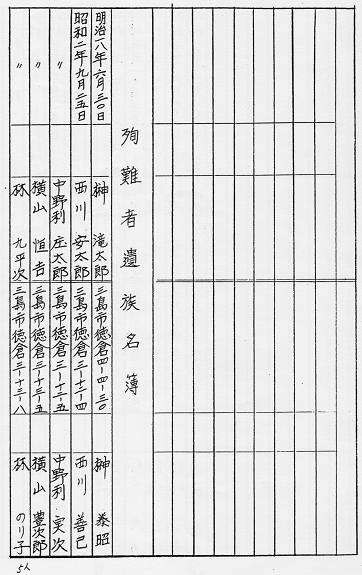 殉難者遺族名簿
明治一八年六月三〇日 榊 滝太郎 三島市徳倉四-四-三〇 榊 泰昭
昭和二年九月二五日 西川 安太郎 三島市徳倉三-十三-四 西川 善己
〃 中野利 庄太郎 三島市徳倉三-十二-五 中野利 実次
〃 横山 恒吉 三島市徳倉三-十三-五 横山 豊次郎
〃 林 九平次 三島市徳倉三-十三-八 林 のり子
5人